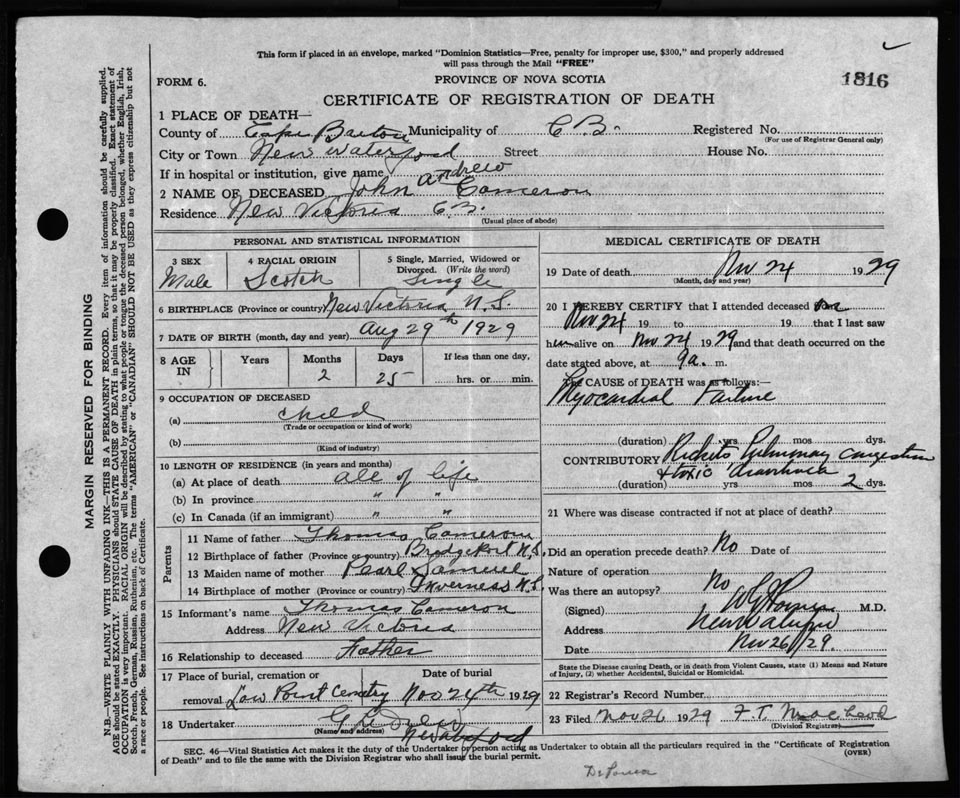 This form if placed in an envelope, marked "Dominion Statistics—Free, penalty for improper use, $300," and properly addressed
will pass through the Mail "FREE"
FORM 6. PROVINCE OF NOVA SCOTIA 1816
CERTIFICATE OF REGISTRATION OF DEATH
1 PLACE OF DEATH—
County of Cape Breton Municipality of C B. Registered No.
(For use of Registrar General only)
City or Town New Waterford Street House No.
If in hospital or institution, give name
2 NAME OF DECEASED John Andrew Cameron
Residence New Victoria C.B.
(Usual place of abode)
PERSONAL AND STATISTICAL INFORMATION
3 SEX 4 RACIAL ORIGIN 5 Single, Married, Widowed or
Divorced. (Write the word)
Male Scotch Single
6 BIRTHPLACE (Province or country) New Victoria N.S.
7 DATE OF BIRTH (month, day and year) Aug 29th 1929
8 AGE IN Years Months Days If less than one day,
2 25 hrs. or min.
9 OCCUPATION OF DECEASED
(a) Child
(Trade or occupation or kind of work)
(b)
(Kind of industry)
10 LENGTH OF RESIDENCE (in years and months)
(a) At place of death all of life
(b) In province " "
(c) In Canada (if an immigrant) " "
Parents
11 Name of father Thomas Cameron
12 Birthplace of father (Province or country) Bridgeport N.S.
13 Maiden name of mother Pearl Samuel
14 Birthplace of mother (Province or country) Inverness N.S.
15 Informant's name Thomas Cameron
Address New Victoria
16 Relationship to deceased Father
17 Place of burial, cremation or Date of burial
removal Low Point Cemetry Nov 24th 1929
18 Undertaker
(Name and address)
MEDICAL CERTIFICATE OF DEATH
19 Date of death Nov 24 1929
(Month, day and year)
20 I HEREBY CERTIFY that I attended deceased
Nov 24 19 to 19 that I last saw
him alive on Nov 24 1929 and that death occurred on the
date stated above, at 9a. m.
The CAUSE OF DEATH was as follows:—
Myocardial Failure
(duration) yrs mos dys.
CONTRIBUTORY Rickets Pulmonary Congestion
& toxic
(duration) yrs mos 2 dys.
21 Where was disease contracted if not at place of death?
Did an operation precede death? No Date of
Nature of operation
Was there an autopsy? No
(Signed) M.D.
Address New Waterford
Date Nov 26/29.
State the Disease causing Death, or in death from Violent Causes, state (1) Means and Nature
of Injury, (2) whether Accidental, Suicidal or Homicidal.
22 Registrar's Record Number
23 Filed Nov 26 1929 F.T. MacLeod
(Division Registrar)
SEC. 46—Vital Statistics Act makes it the duty of the Undertaker or person acting as Undertaker to obtain all the particulars required in the "Certificate of Registration
of Death" and to file the same with the Division Registrar who shall issue the burial permit. (OVER)
MARGIN RESERVED FOR BINDING
N.B.—WRITE PLAINLY WITH UNFADING INK—THIS IS A PERMANENT RECORD. Every item of information should be carefully supplied.
AGE should be stated EXACTLY. PHYSICIANS should STATE CAUSE OF DEATH in plain terms, so that it may be properly classified. Exact statement of
OCCUPATION is very important. RACIAL ORIGIN will be described by stating to what people or tongue the deceased person belonged, whether English, Irish,
Scotch, French, German, Russian, Ruthenian, etc. The terms "AMERICAN" or "CANADIAN" SHOULD NOT BE USED as they express citizenship but not
a race or people. See instructions on back of Certificate.